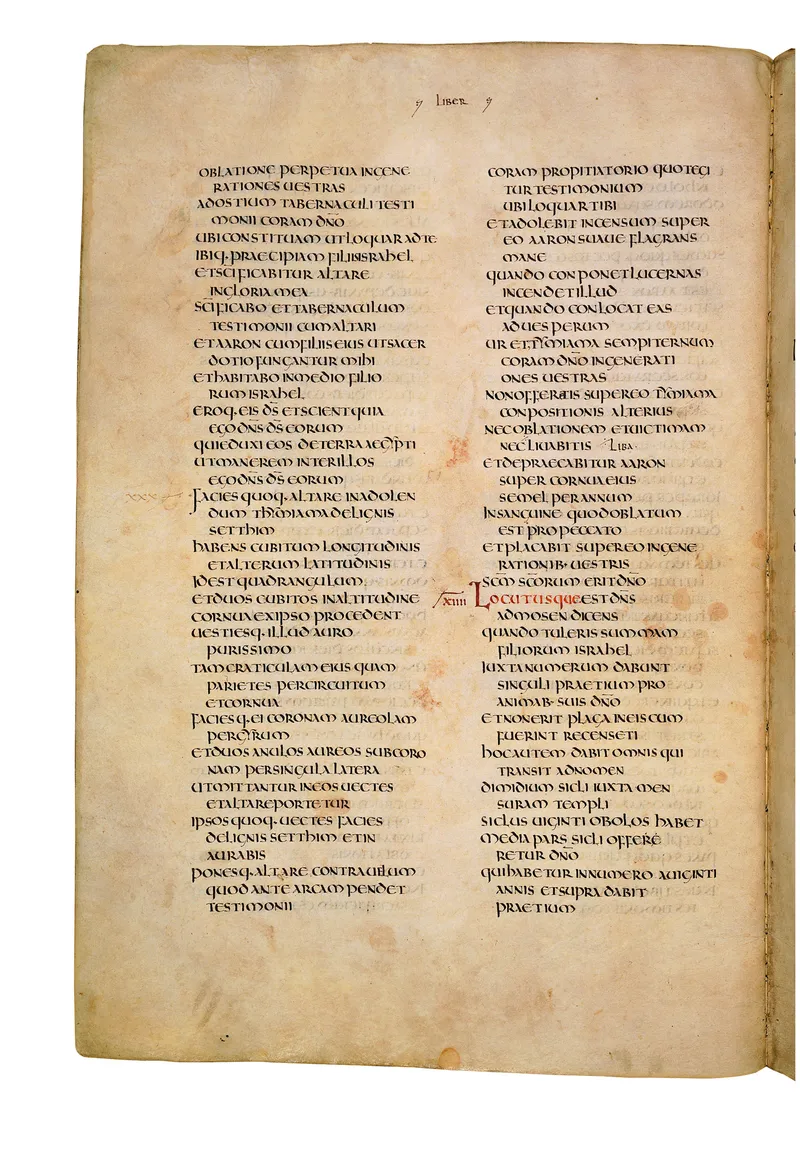 LIBER
OBLATIONE PERPETUA INGENE
RATIONES UESTRAS
AD OSTIUM TABERNACULI TESTI
MONII CORAM DN̄O
UBI CONSTITUAM UT LOQUAR AD TE
IBIQ· PRAECIPIAM FILIIS ISRAHEL
ET SC̄IFICABITUR ALTARE
IN GLORIA MEA
SC̄IFICABO ET TABERNACULUM
TESTIMONII CUM ALTARI
ET AARON CUM FILIIS EIUS UT SACER
DOTIO FUNGANTUR MIHI
ET HABITABO IN MEDIO FILIO
RUM ISRAHEL
EROQ· EIS D̄S ET SCIENT QUIA
EGO DN̄S D̄S EORUM
QUI EDUXI EOS DE TERRA AEGYPTI
UT MANEREM INTER ILLOS
EGO DN̄S D̄S EORUM
FACIES QUOQ· ALTARE IN ADOLEN
DUM THYMIAMA DE LIGNIS
SETTHIM
HABENS CUBITUM LONGITUDINIS
ET ALTERUM LATITUDINIS
ID EST QUADRANGULUM
ET DUOS CUBITOS IN ALTITUDINE
CORNUA EX IPSO PROCEDENT
UESTIESQ· ILLUD AURO
PURISSIMO
TAM CRATICULAM EIUS QUAM
PARIETES PER CIRCUITUM
ET CORNUA
FACIESQ· EI CORONAM AUREOLAM
PER GYRUM
ET DUOS ANULOS AUREOS SUB CORO
NAM PER SINGULA LATERA
UT MITTANTUR IN EOS UECTES
ET ALTARE PORTETUR
IPSOS QUOQ· UECTES FACIES
DE LIGNIS SETTHIM ET IN
AURABIS
PONESQ· ALTARE CONTRA UELUM
QUOD ANTE ARCAM PENDET
TESTIMONII
CORAM PROPITIATORIO QUO TEGI
TUR TESTIMONIUM
UBI LOQUAR TIBI
ET ADOLEBIT INCENSUM SUPER
EO AARON SUAUE FLAGRANS
MANE
QUANDO CONPONET LUCERNAS
INCENDET ILLUD
ET QUANDO CONLOCAT EAS
AD UESPERUM
URET THYMIAMA SEMPITERNUM
CORAM DN̄O IN GENERATI
ONES UESTRAS
NON OFFERETIS SUPER EO THYMIAMA
CONPOSITIONIS ALTERIUS
NEC OBLATIONEM ET UICTIMAM
NEC LIUABITIS LIBA
ET DEPRAECABITUR AARON
SUPER CORNUA EIUS
SEMEL PER ANNUM
IN SANGUINE QUOD OBLATUM
EST PRO PECCATO
ET PLACABIT SUPER EO IN GENE
RATIONIB· UESTRIS
SC̄M SC̄ORUM ERIT DN̄O
XIIII LOCUTUSQUE EST DN̄S
AD MOSEN DICENS
QUANDO TULERIS SUMMAM
FILIORUM ISRAHEL
IUXTA NUMERUM DABUNT
SINGULI PRAETIUM PRO
ANIMAB· SUIS DN̄O
ET NON ERIT PLAGA IN EIS CUM
FUERINT RECENSETI
HOC AUTEM DABIT OMNIS QUI
TRANSIT AD NOMEN
DIMIDIUM SICLI IUXTA MEN
SURAM TEMPLI
SICLUS UIGINTI OBOLOS HABET
MEDIA PARS SICLI OFFERE
RETUR DN̄O
QUI HABETUR IN NUMERO A UIGINTI
ANNIS ET SUPRA DABIT
PRAETIUM